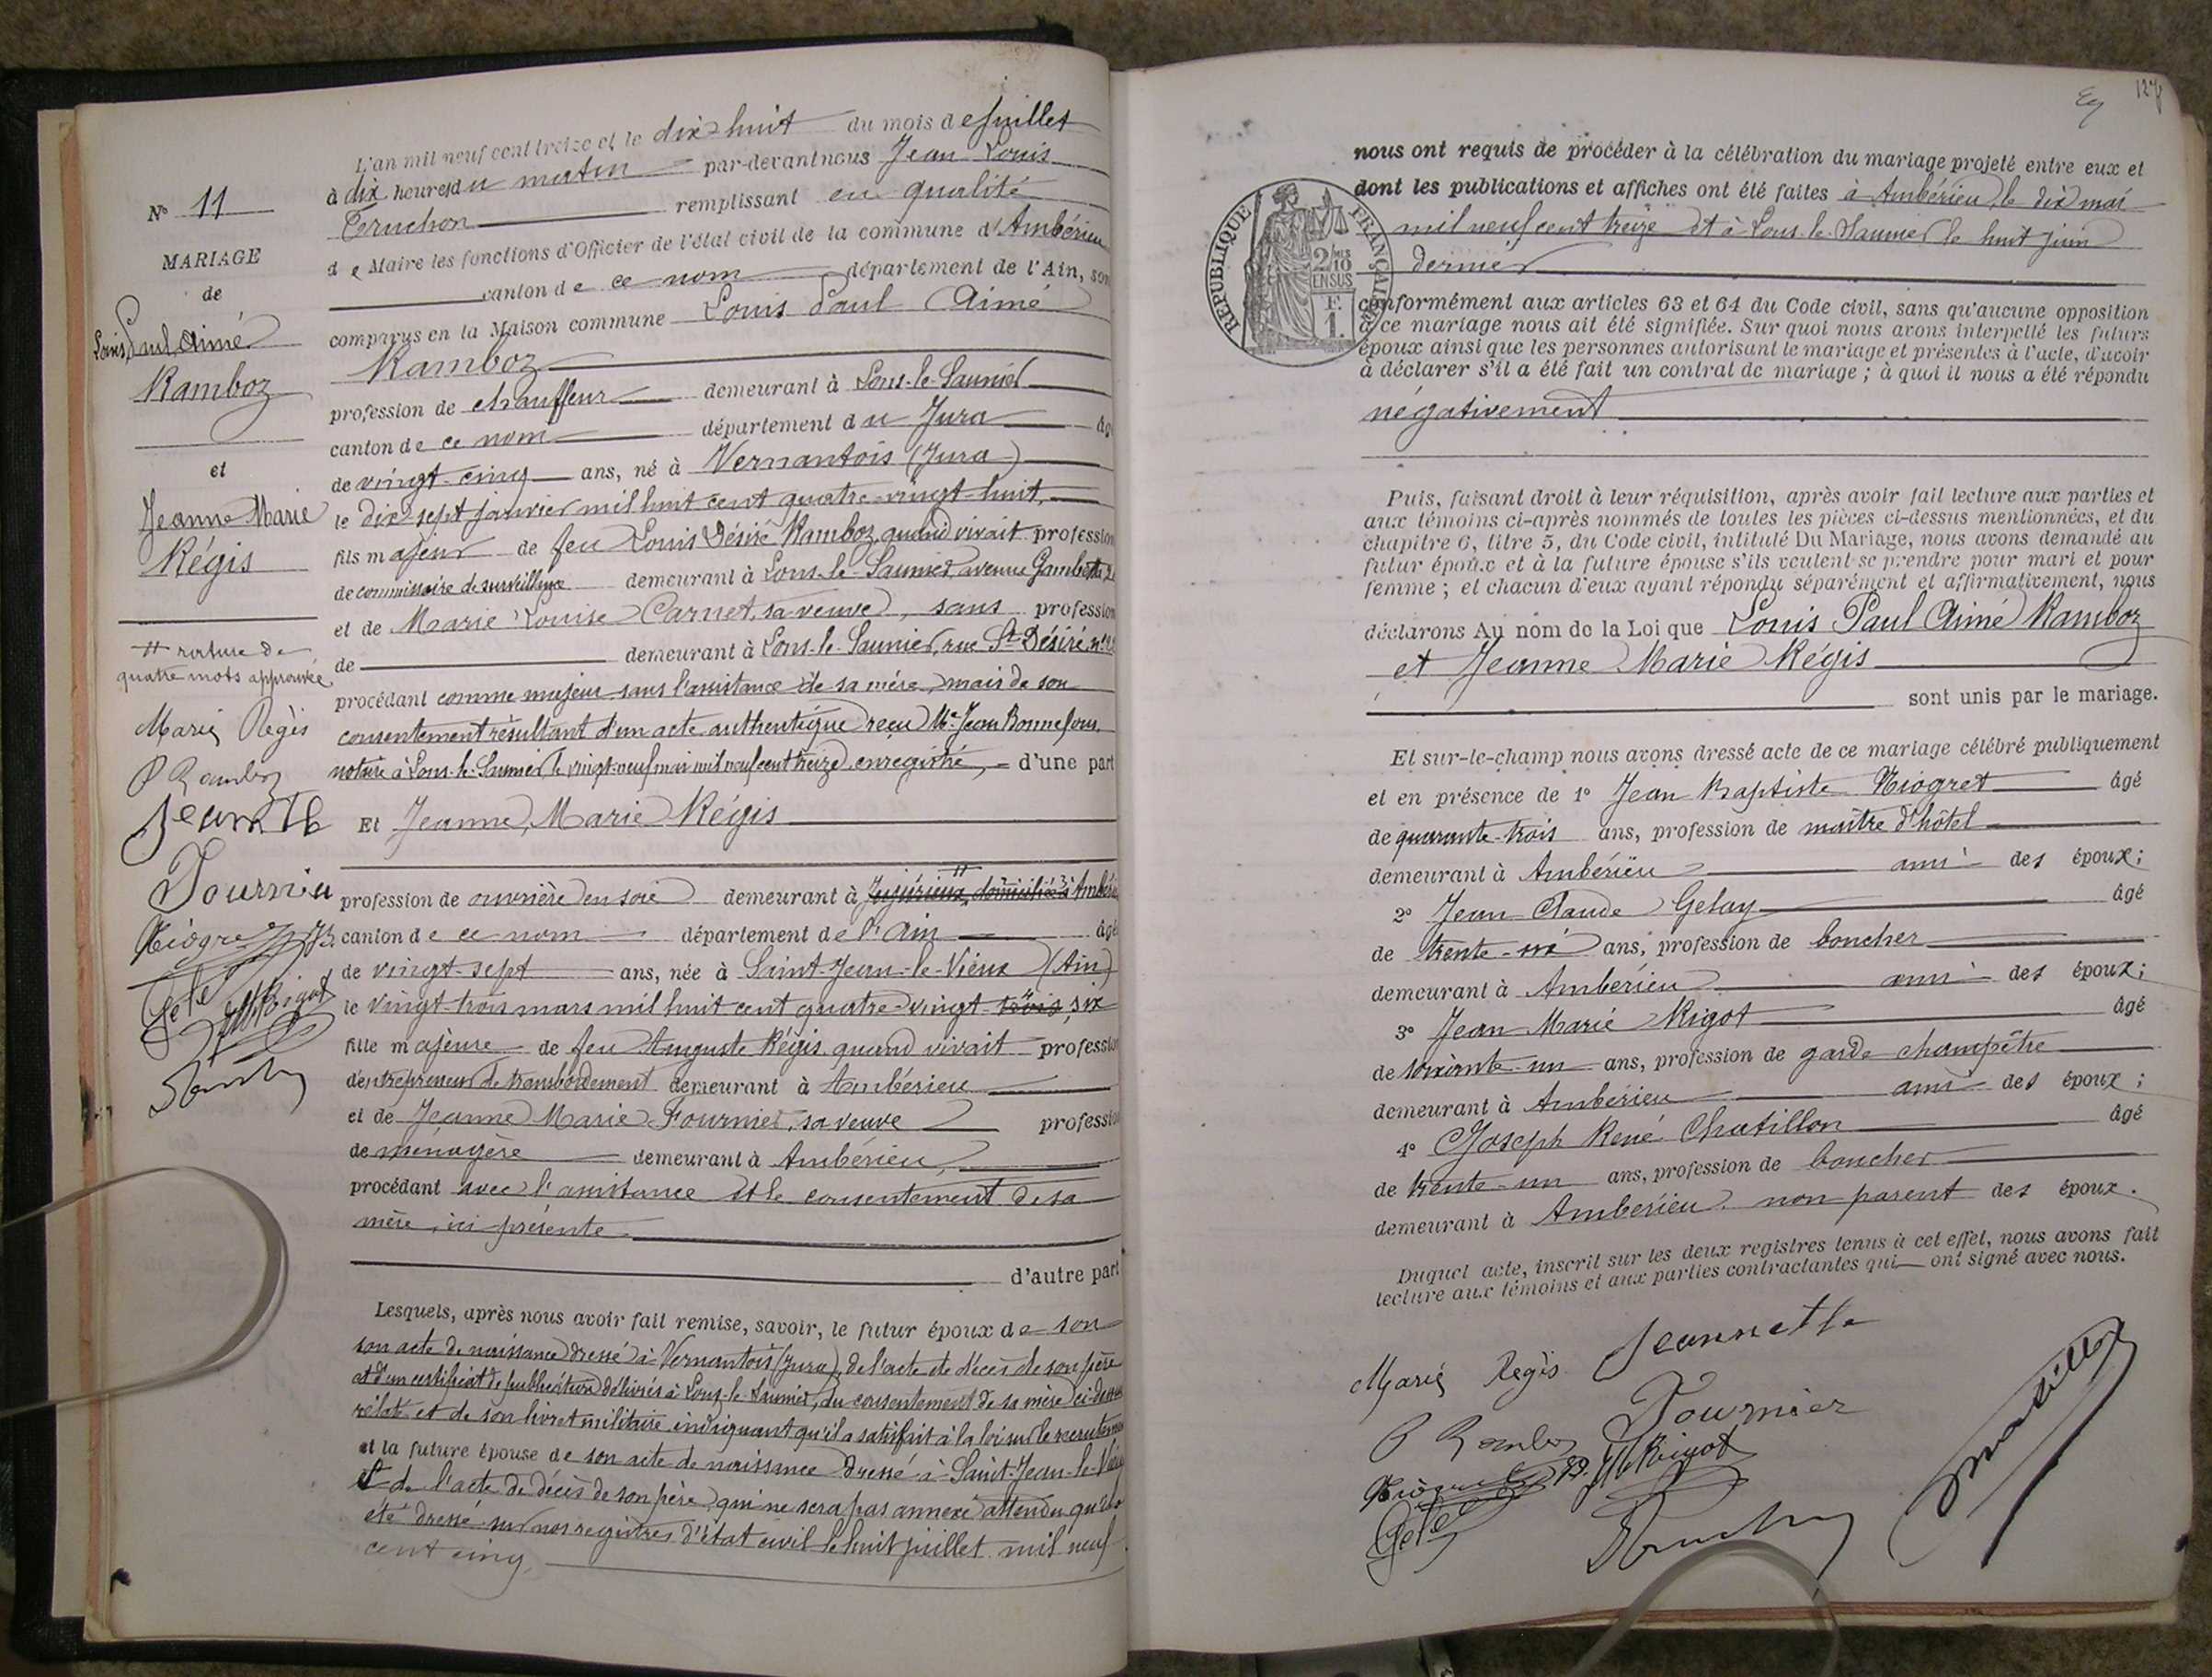 L'an mil neuf cent treize et le dix-huit du mois de Juillet
à dix heures du matin par-devant nous Jean Louis
Peruchon remplissant en qualité
de Maire les fonctions d'Officier de l'état civil de la commune d'Ambérieu
canton de ce nom département de l'Ain, son
comparus en la Maison commune Louis Paul Aimé
Ramboz
profession de chauffeur demeurant à Lons-le-Saunier
canton de ce nom département du Jura âg
de vingt-cinq ans, né à Vernantois (Jura)
le dix-sept janvier mil huit cent quatre-vingt-huit,
fils majeur de feu Louis Désiré Ramboz, quand vivait profession
de commissaire de surveillance demeurant à Lons-le-Saunier, avenue Gambetta
et de Marie Louise Carnet, sa veuve, sans profession
de demeurant à Lons-le-Saunier, rue St-Désiré, n°
procédant comme majeur sans l'assistance de sa mère, mais de son
consentement résultant d'un acte authentique reçu Me Jean Bonnefous,
notaire à Lons-le-Saunier le vingt-neuf mai mil neuf cent treize, enregistré, d'une part
Et Jeanne, Marie Régis
profession de ouvrière en soie demeurant à Jujurieux, domiciliée à Ambérieu
canton de ce nom département de l'Ain âgé
de vingt-sept ans, née à Saint-Jean-le-Vieux (Ain)
le vingt-trois mars mil huit cent quatre vingt-trois six
fille majeure de feu Auguste Régis, quand vivait profession
d'entrepreneur de transbordement demeurant à Ambérieu
et de Jeanne Marie Fournier, sa veuve profession
de ménagère demeurant à Ambérieu,
procédant avec l'assistance et le consentement de sa
mère, ici présente
d'autre part
Lesquels, après nous avoir fait remise, savoir, le futur époux de son
son acte de naissance dressé à Vernantois (Jura), de l'acte de décès de son père
et d'un certificat de publication délivrés à Lons-le-Saunier, du consentement de sa mère ci-dessus
relaté et de son livret militaire indiquant qu'il a satisfait à la loi sur le recrutement
et la future épouse de son acte de naissance dressé à Saint-Jean-le-Vieux
et de l'acte de décès de son père, qui ne sera pas annexé attendu qu'il a
été dressé sur nos registres d'état civil le huit juillet mil neuf
cent cinq,
N° 11
MARIAGE
de
Louis Paul Aimé
Ramboz
et
Jeanne Marie
Régis
# rature de
quatre mots approuvée
Marie Régis
P Ramboz
Jeannette
Fournier
Niogret JB.
Gelay JM Rigot
Peruchon
127
nous ont requis de procéder à la célébration du mariage projeté entre eux et
dont les publications et affiches ont été faites à Ambérieu, le dix mai
mil neuf cent treize et à Lons-le-Saunier le huit juin
dernier
RÉPUBLIQUE FRANÇAISE
2/10
EN SUS
F.
1.
conformément aux articles 63 et 64 du Code civil, sans qu'aucune opposition
à ce mariage nous ait été signifiée. Sur quoi nous avons interpellé les futurs
époux ainsi que les personnes autorisant le mariage et présentes à l'acte, d'avoir
à déclarer s'il a été fait un contrat de mariage ; à quoi il nous a été répondu
négativement
Puis, faisant droit à leur réquisition, après avoir fait lecture aux parties et
aux témoins ci-après nommés de toutes les pièces ci-dessus mentionnées, et du
chapitre 6, titre 5, du Code civil, intitulé Du Mariage, nous avons demandé au
futur époux et à la future épouse s'ils veulent se prendre pour mari et pour
femme ; et chacun d'eux ayant répondu séparément et affirmativement, nous
déclarons Au nom de la Loi que Louis Paul Aimé Ramboz
et Jeanne Marie Régis
sont unis par le mariage.
Et sur-le-champ nous avons dressé acte de ce mariage célébré publiquement
et en présence de 1° Jean Baptiste Niogret âgé
de quarante-trois ans, profession de maître d'hôtel
demeurant à Ambérieu ami des époux;
2° Jean Claude Gelay âgé
de trente-six ans, profession de boucher
demeurant à Ambérieu ami des époux;
3° Jean Marie Rigot âgé
de soixante-un ans, profession de garde champêtre
demeurant à Ambérieu ami des époux;
4° Joseph René Chatillon âgé
de trente-un ans, profession de boucher
demeurant à Ambérieu, non parent des époux.
Duquel acte, inscrit sur les deux registres tenus à cet effet, nous avons fait
lecture aux témoins et aux parties contractantes qui ont signé avec nous.
Marie Régis Jeannette
P Ramboz Fournier
Niogret JB. JM Rigot
Gelay Peruchon Chatillon